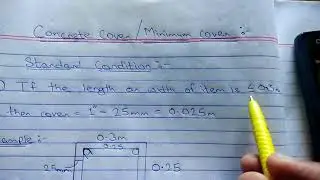 Concrete cover / Minimum cover :-
Standard Condition :-
) If the length or width of item is ≤
then cover = 1" - 25mm = 0.025m
ample :-
0.3m
0.25
25mm
0.25